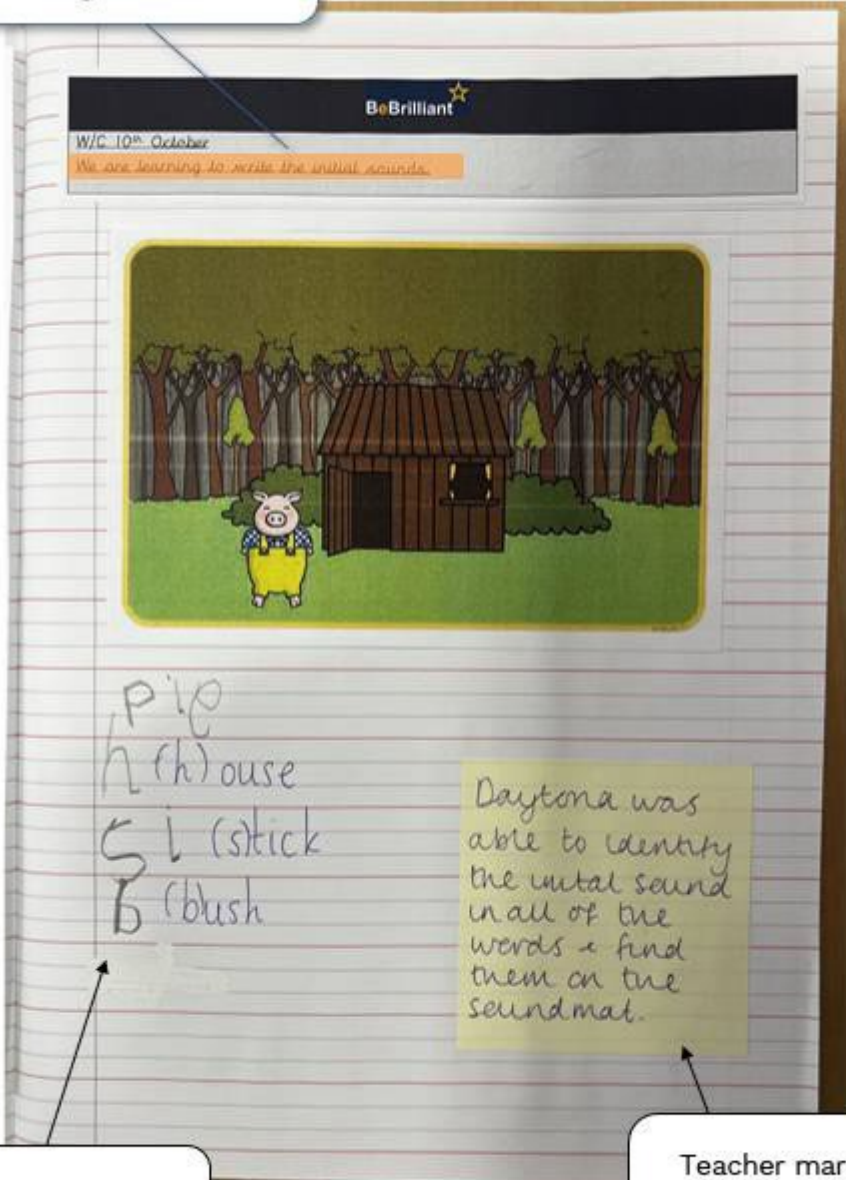 BeBrilliant
W/C 10th October
We are learning to write the initial sounds.
pie
h (h)ouse
si (s)tick
b (b)ush
Daytona was
able to identify
the inital sound
in all of the
words & find
them on the
soundmat.
Teacher mar